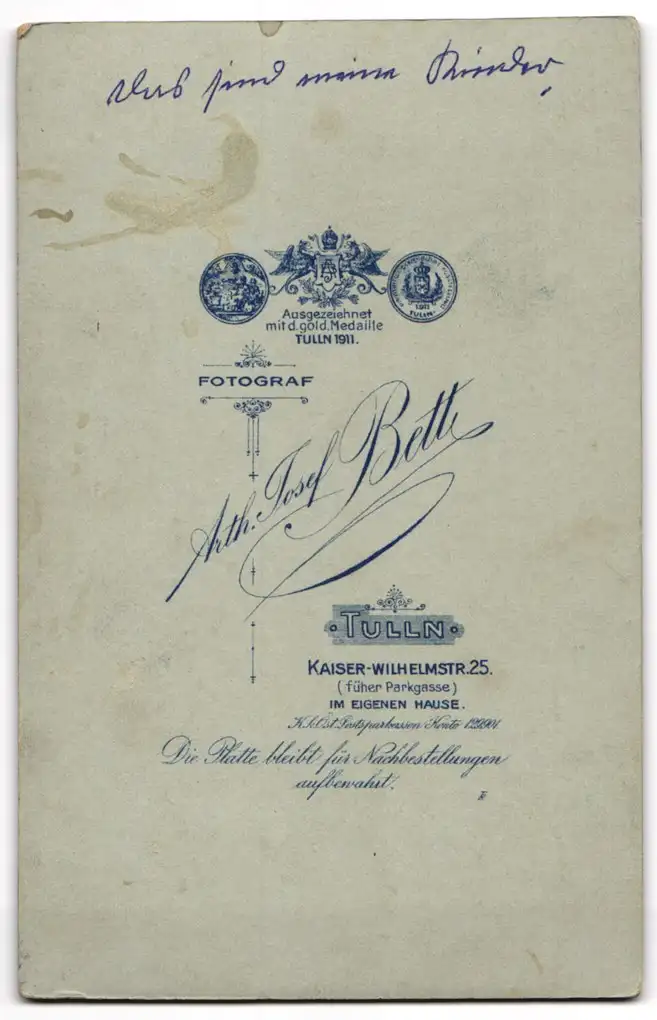 Das sind meine Kinder
Ausgezeichnet
mit d. gold. Medaille
TULLN 1911.
1911
TULLN
FOTOGRAF
Arth. Josef Bett
TULLN
KAISER-WILHELMSTR. 25.
(füher Parkgasse)
IM EIGENEN HAUSE.
Postsparkassen Konto
Die Platte bleibt für Nachbestellungen
aufbewahrt.